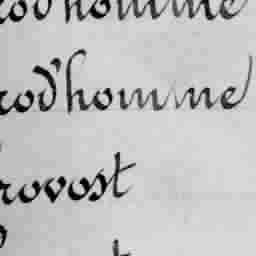 rod'homme
rod'homme
rovost